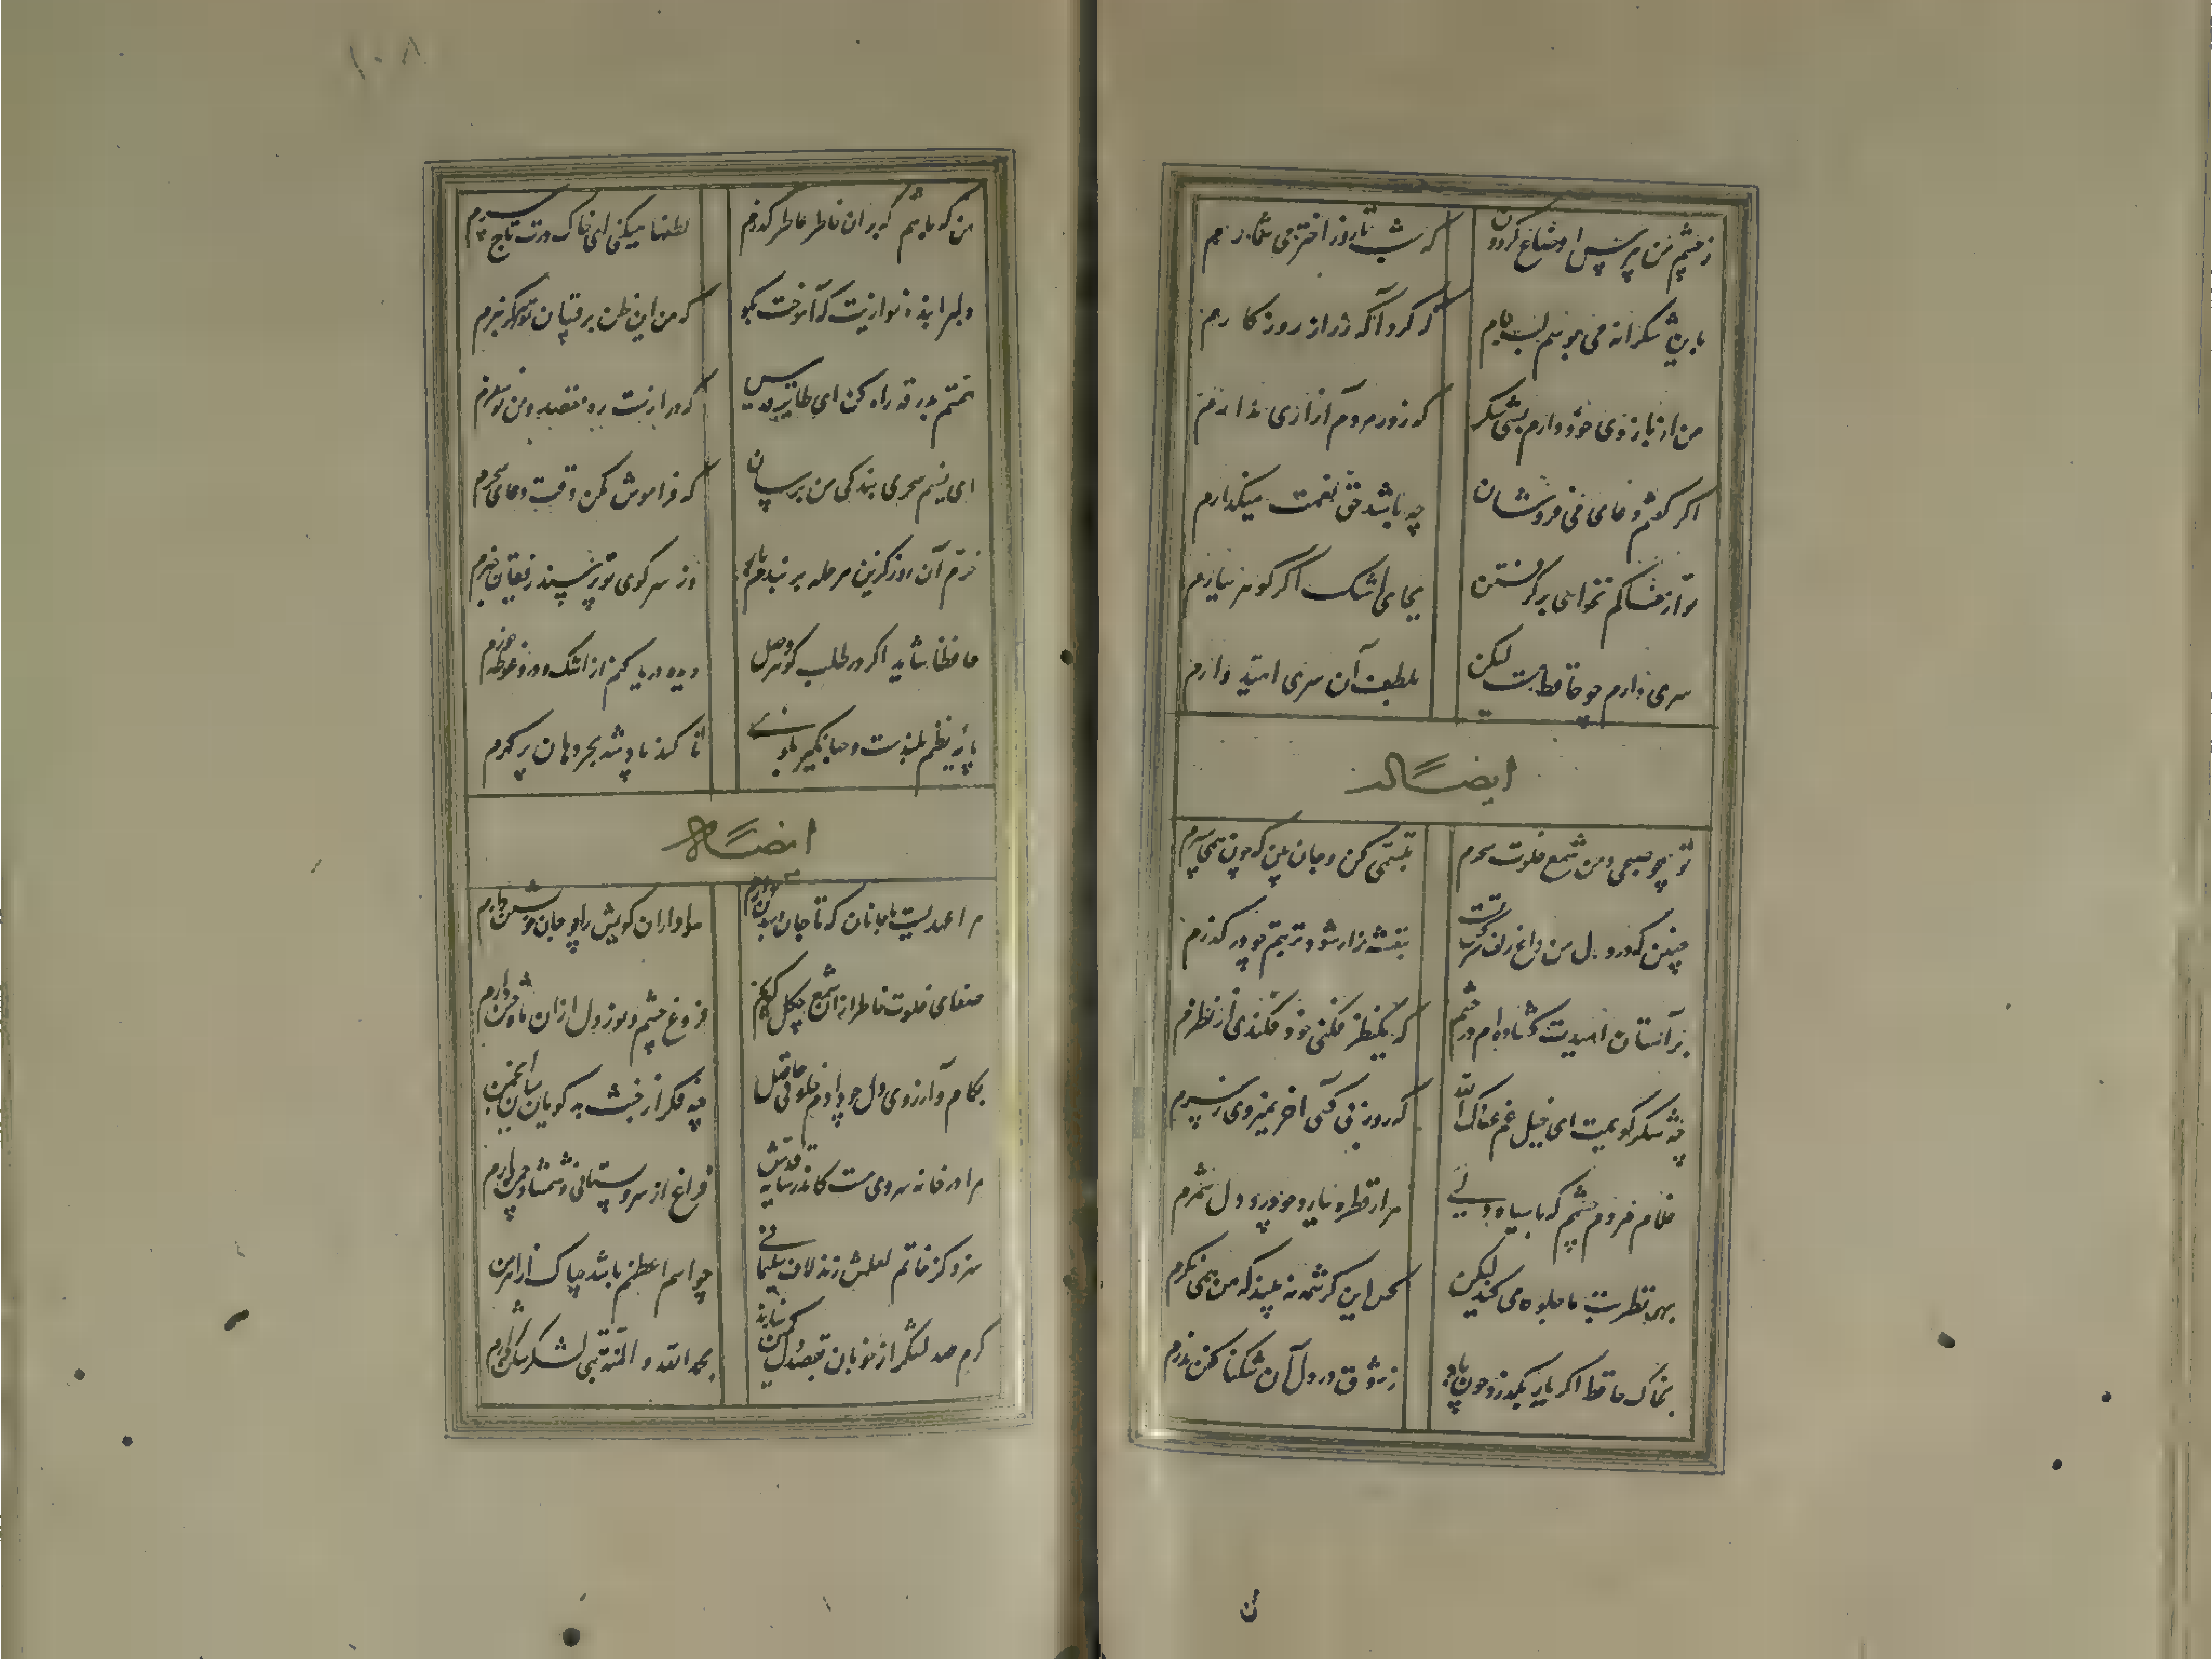 ز چشم من بپرس اوضاع گردون که شب تا روز اختر می شمارم
بدین شکرانه می بوسم لب جام که کرد آگه ز راز روزگارم
من از بازوی خود دارم بسی شکر که زور مردم آزاری ندارم
اگر گفتم دعای می فروشان چه باشد حق نعمت میگذارم
تو از خاکم نخواهی برگرفتن بجای اشک اگر گوهر ببارم
سری دارم چو حافظ مست لیکن بلطف آن سری امیدوارم
ایضاً له
تو همچو صبحی و من شمع خلوت سحرم تبسمی کن و جان بین که چون همی سپرم
چنین که در دل من داغ زلف سرکش تست بنفشه زار شود تربتم چو درگذرم
بر آستان امیدت گشاده ام در چشم که یکنظر فکنی خود فکندی از نظرم
چه شکر گویمت ای خیل غم عفاک الله که روز بی کسی آخر نمیروی ز سرم
غلام مردم چشمم که با سیاه دلی هزار قطره ببارد چو درد دل شمرم
بهر نظر بت ما جلوه می کند لیکن کس این کرشمه نه بیند که من همی نگرم
بخاک حافظ اگر یار بگذرد چون باد ز شوق در دل آن تنگنا کفن بدرم
ن
۱۰۸
من که باشم که بر آن خاطر عاطر گذرم لطفها میکنی ای خاک درت تاج سرم
دلبرا بنده نوازیت که آموخت بگو که من این ظن برقیبان تو هرگز نبرم
همتم بدرقه راه کن ای طایر قدس که درازست ره مقصد و من نوسفرم
ای نسیم سحری بندگی من برسان که فراموش مکن وقت دعای سحرم
خرم آن روز کزین مرحله بربندم بار وز سر کوی تو پرسند رفیقان خبرم
حافظا شاید اگر در طلب گوهر وصل دیده دریا کنم از اشک و درو غوطه خورم
پایه نظم بلندست و جهانگیر بگو تا کند پادشه بحر دهان پر گهرم
ایضاً له
مرا عهدیست با جانان که تا جان در بدن دارم هواداران کویش را چو جان خویشتن دارم
صفای خلوت خاطر از آن شمع چگل جویم فروغ چشم و نور دل از آن ماه ختن دارم
بکام و آرزوی دل چو دارم خلوتی حاصل چه فکر از خبث بدگویان میان انجمن دارم
مرا در خانه سروی هست کاندر سایه قدش فراغ از سرو بستانی و شمشاد چمن دارم
سزد کز خاتم لعلش زنم لاف سلیمانی چو اسم اعظمم باشد چه باک از اهرمن دارم
گرم صد لشکر از خوبان بقصد دل کمین سازند بحمد الله و المنه بتی لشکر شکن دارم